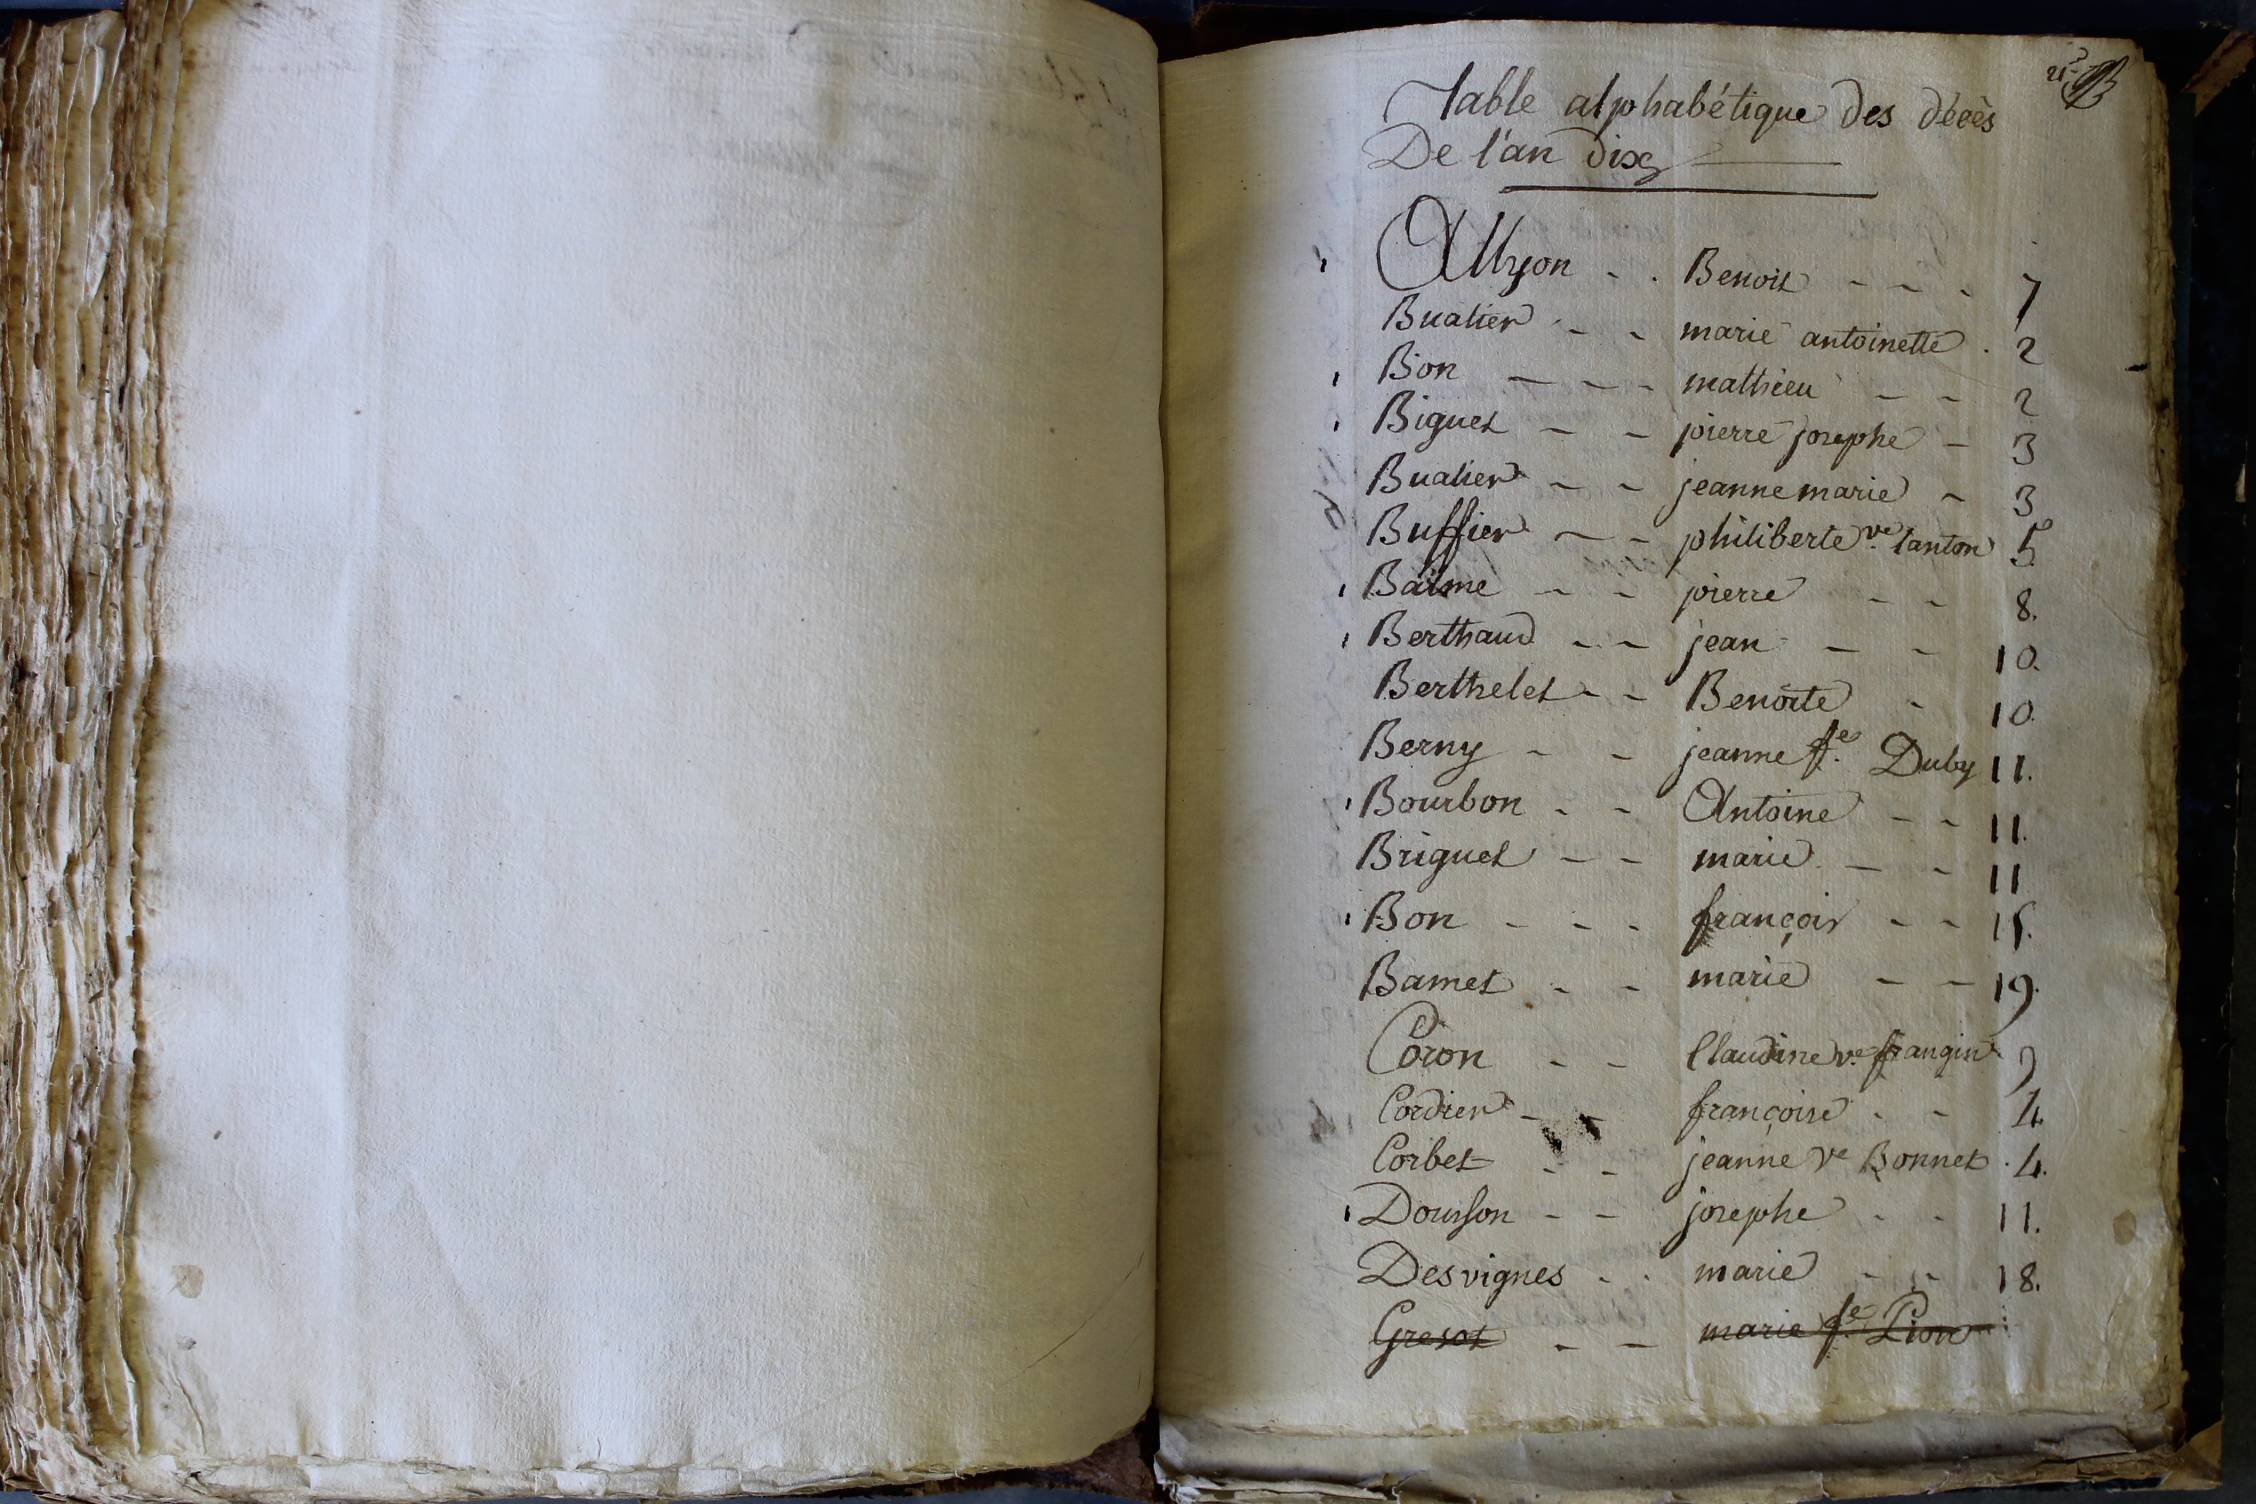 Table alphabétique des décès
De l'an dix
Allyon - - Benoit - - - 7
Bualier - - marie antoinette . 2
Bon - - - mathieu - - 2
Biguet - - pierre josephe - 3
Bualier - - jeanne marie - 3
Buffier - - philiberte ve. lanton 5
Baisme - - pierre - - 8.
Berthaud - - jean - - 10.
Berthelet - - Benoite - 10.
Berny - - jeanne fe. Duby 11.
Bourbon - - Antoine - - 11.
Briguet - - marie - - 11
Bon - - - françois - - 15.
Bamet - - marie - - 19.
Coron - - Claudine ve. frangin 9
Cordier - - françoise - - 4.
Corbet - - jeanne ve Bonnet . 4.
Dousson - - josephe - - 11.
Desvignes - - marie - - 18.
Gresot - - marie fe. Lion